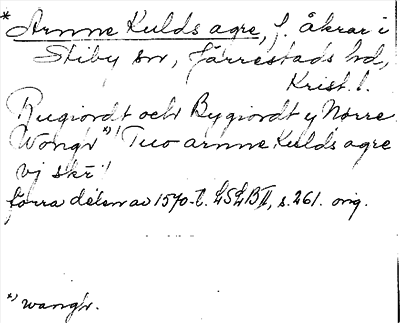 * Arnne Kulds agre, f. åkrar i
Stiby sn, Järrestads hd,
Krist. l.
Rugiordt och Bygiordt y Norre
Wongr *) ! Tuo arnne Kulds agre
vj skr !
förra delen av 1570-t. LSLB II, s. 261. orig.
*) wangr.